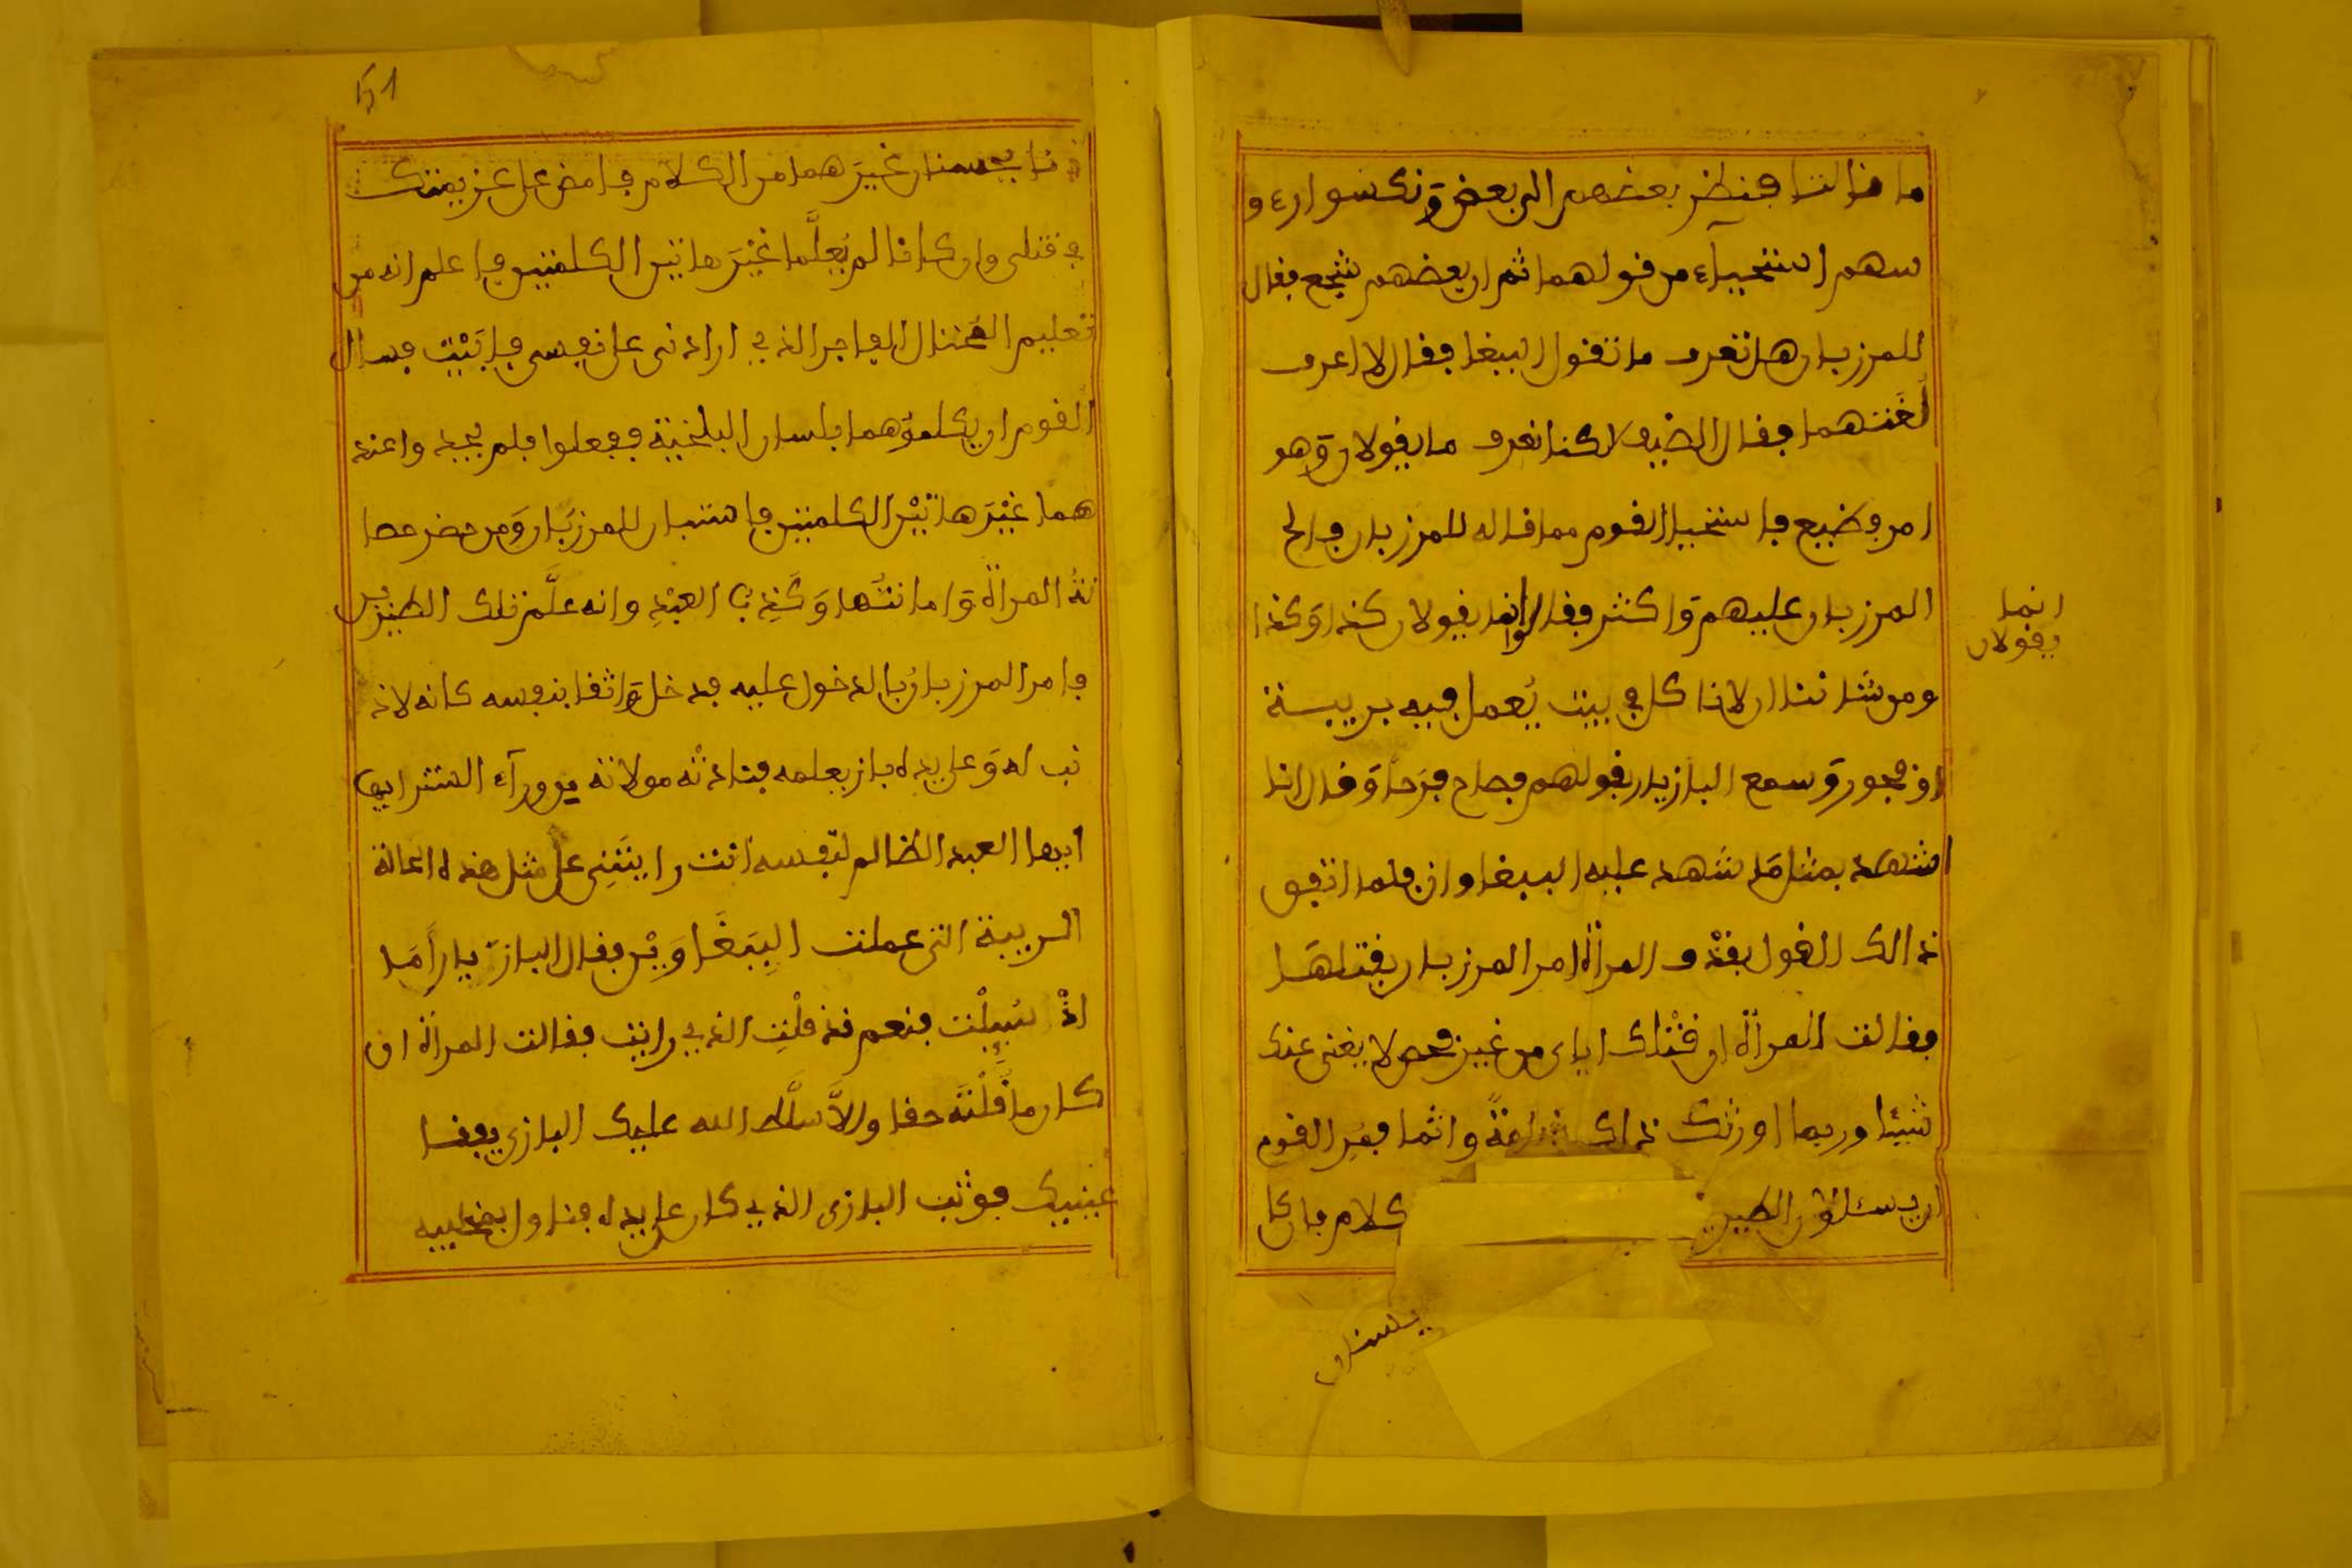 ما قالتا فنظر بعضهم الى بعض وَنكسوا رءو
سهم استحيآء من قولهما ثم ان بعضهم شجع فقال
للمرزبان هل تعرف ما تقول الببغا فقال لا اعرف
لُغَتهما فقال الضيف لاكنا نعرف ما يقولان وَهو
امر فظيع فاستحيا القوم مما قاله للمرزبان فالح
المرزبان عليهم وَاكثر فقالوا انهما يقولان كذا وَكذا
انما
يقولان
ومن شاننا ان لا ناكل في بيت يُعمل فيه بريبة
او فجور وَسمع البازيار بقولهم فصاح فرَحاً وَقال انا
اشهد بمثل مَا شهد عليه الببغا وان فلما اتفق
ذالك القول بقذف المرأة امر المرزبان بقتلهَا
فقالت المرأة ان قتْلك اياى من غير فحص لا يغنى عنك
شيئا وربما اورثك ذاك ندامةً واثما فمُرِ القوم
ان يسئلوا الطيرين كلام فان كان
يحسنان
ذنا يحسنان غيرَهما من الكلام فامض على عزيمتك
في قتلى وان كانا لم يُعلَّما غيْرَ هاتين الكلمتين فاعلم انه من
تعليم المحتال الفاجر الذي ارادنى على نفسى فابَيْت فسال
القوم ان يكلموهما بلسان البلخية ففعلوا فلم يجدوا عند
هما غيْرَ هاتيْن الكلمتين فاستبان للمرزبَان وَمن حضر حصا
نةُ المرأة وَامانتُها وَكَذِب العبْدِ وانه علَّم تلك الطيرين
فامر المرزبان بالدخول عليه فدخل وَاثقا بنفسه كانه لا ذ
نب له وَعلى يده باز يعلمه فنادتْه مولاته من ورآء الستر ايها
ايها العبد الظالم لنفسه انت رايتَنِى على مثل هذه الحالة
الريبة التى عملت الببَغَاوَيْن فقال البازيار اَمَا
اذْ سُيِلْت فنعم قد قلْتِ الذي رايت فقالت المرأة ان
كان ما قُلْتَه حقا وإلاَّ سلَّط الله عليك البازى يفقا
عينيك فوثب البازى الذي كان على يده فتناول بمخلبيه